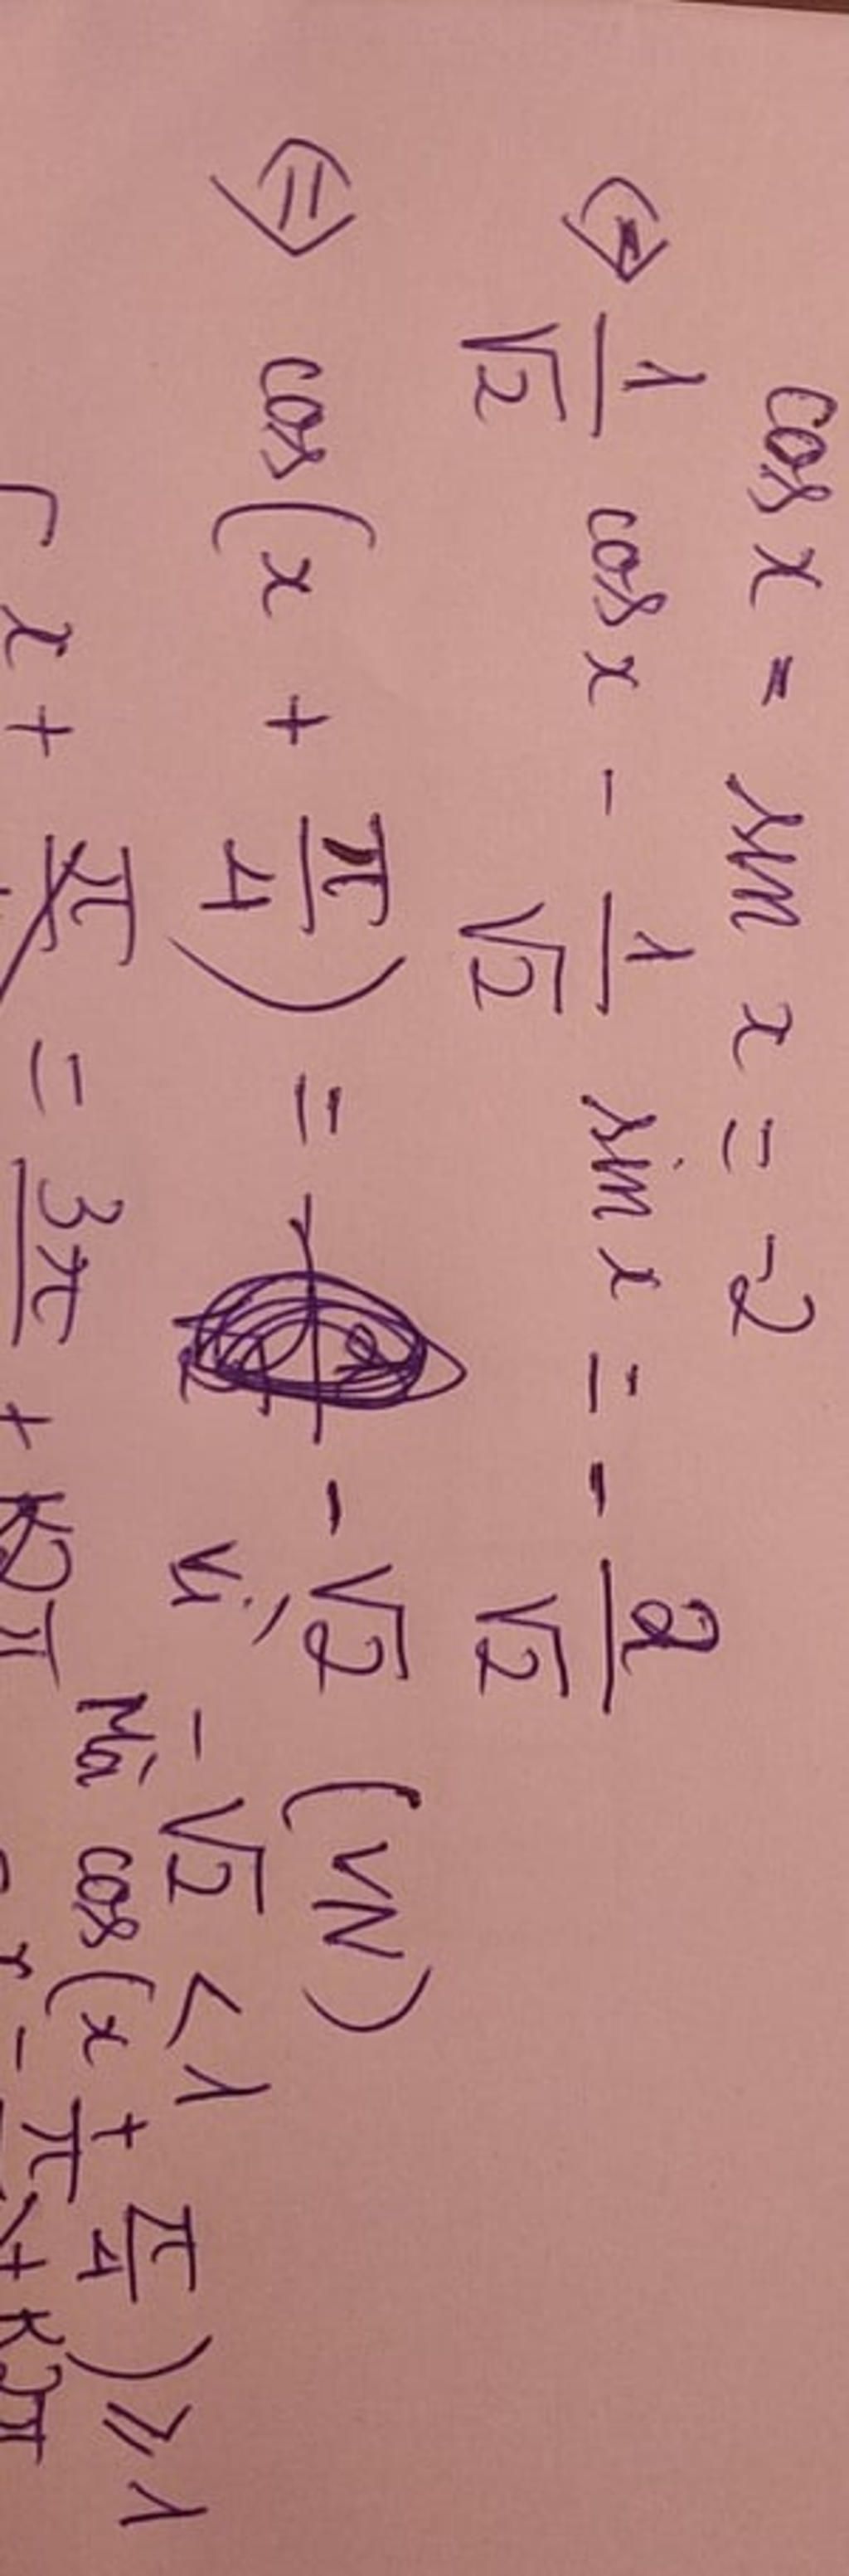 cos x = sin x = -2
<=> 1/√2 cos x - 1/√2 sin x = - 2/√2
<=> cos(x + π/4) = - √2 (VN)
Vì -√2 < 1
Mà cos(x + π/4) ≥ 1
x + π = 3π + k2π
x - π + k2π